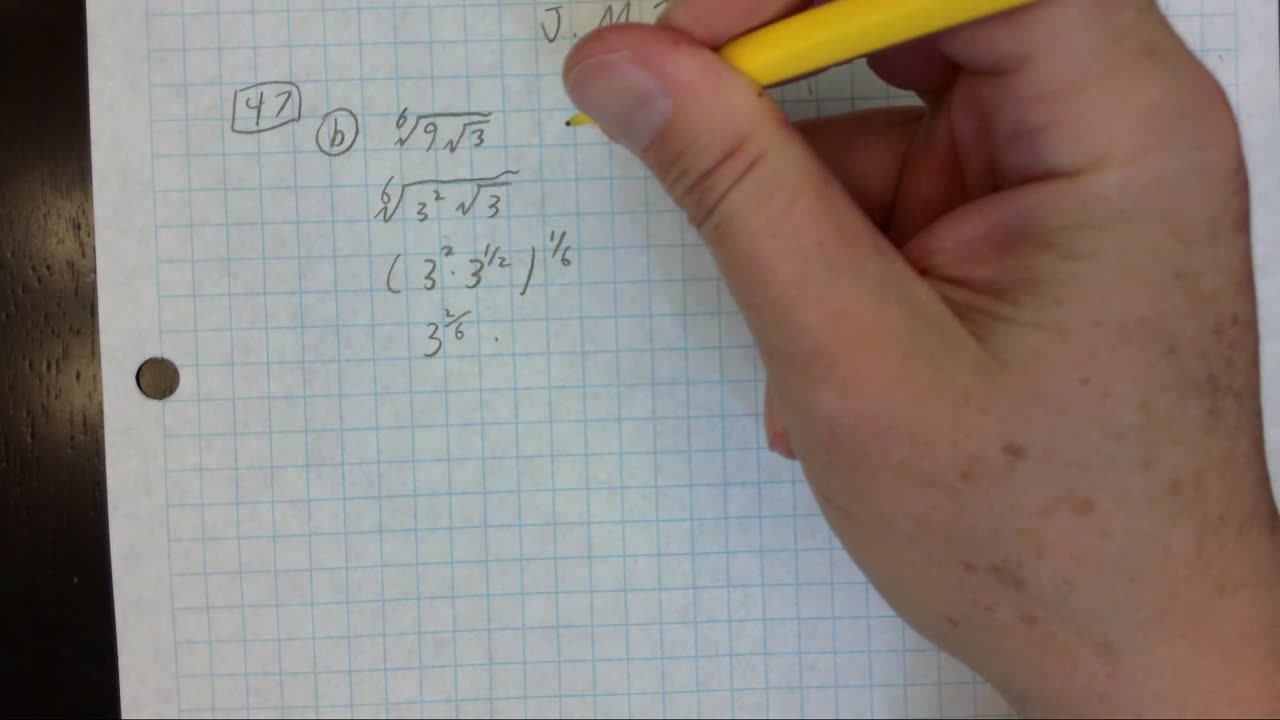 J. M.
47 b ⁶√(9√3)
⁶√(3² √3)
(3² · 3^1/2)^1/6
3^2/6 ·